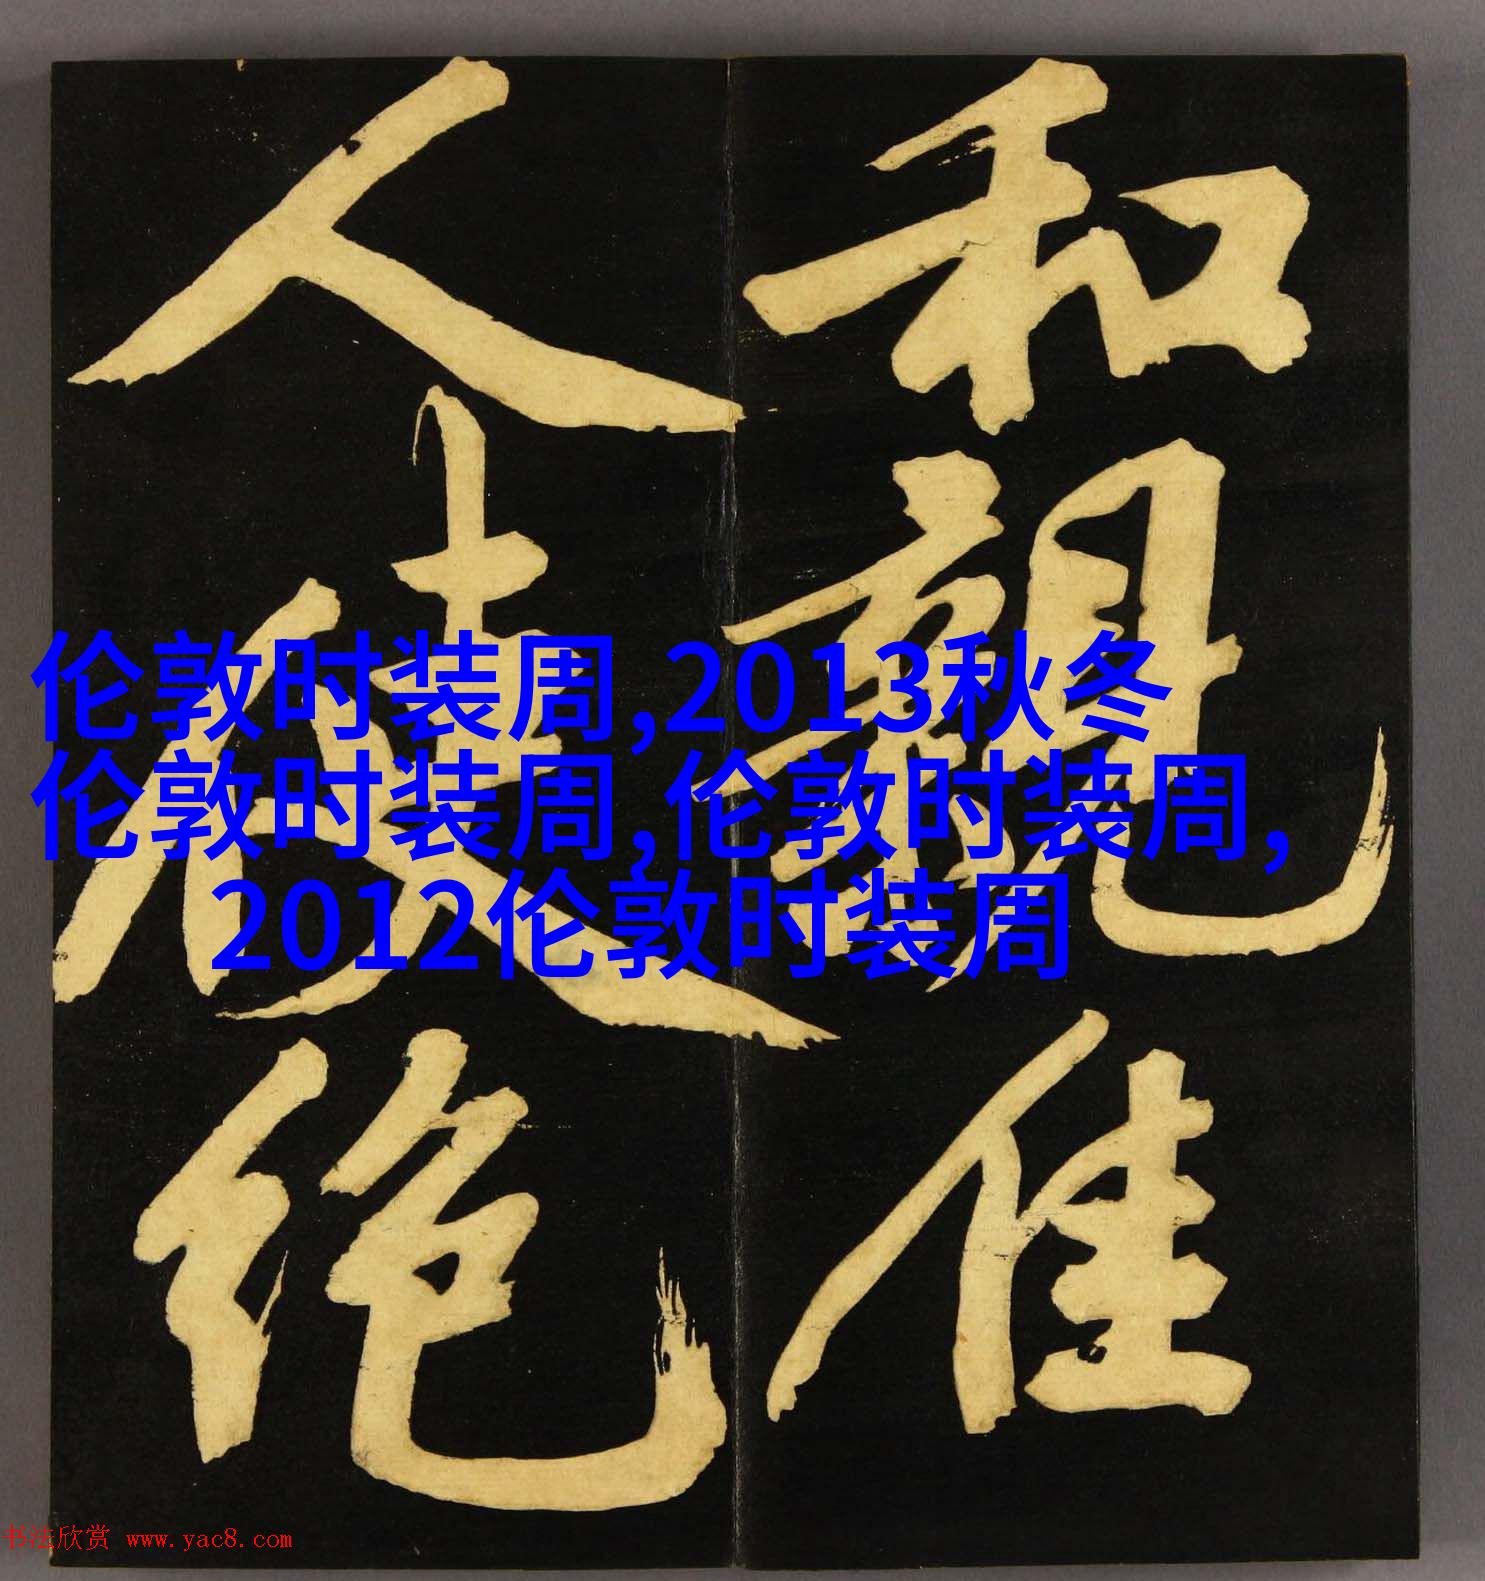 和親佳
人使絶
伦敦时装周,2013秋冬
伦敦时装周,伦敦时装周,
2012伦敦时装周
书法欣赏 www.yac8.com